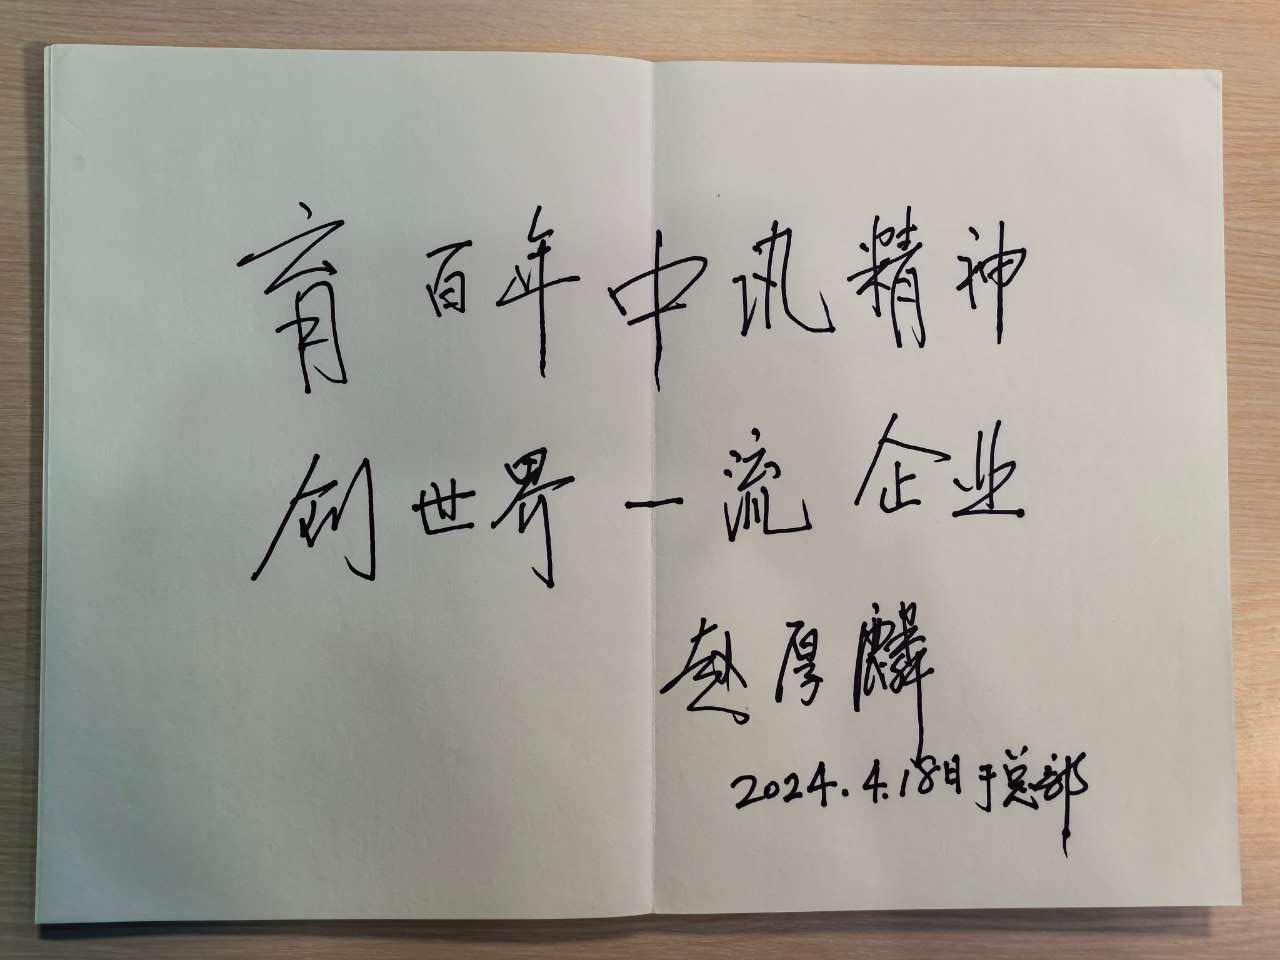 育百年中讯精神
创世界一流企业
赵厚麟
2024.4.18日于总部